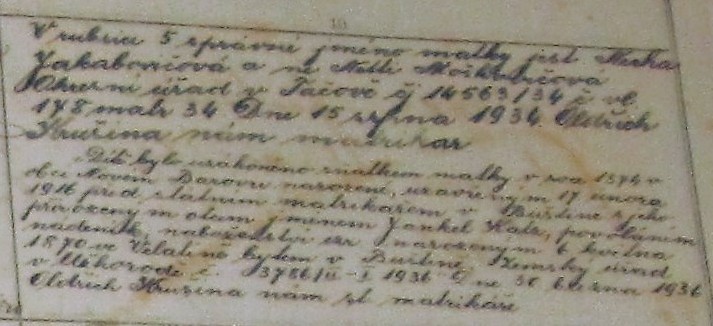 10
V rubrice 5 správné jméno matky jest Nesha
Jakabovičová a ne Netti Moškovičová
Okresní úřad v Ťačově čj 14563/34 č vl.
178 matr 34 Dne 15 srpna 1934. Oldřich
Kružina nám matrikář
Dítě bylo uzákoněno sňatkem matky v roce 1874 v
obci Novém Barově narozené, uzavřeným 17 února
1916 před státním matrikářem v Buštině s jeho
přirozeným otcem jménem Jankel Katz, povoláním
nádeník, náboženství isr. narozeným 6 května
1870 ve Velatině bytem v Buštině. Zemský úřad
v Užhorodě č. 3786/II-I 1936 ze dne 30 března 1936
Oldřich Kružina nám st. matrikáře